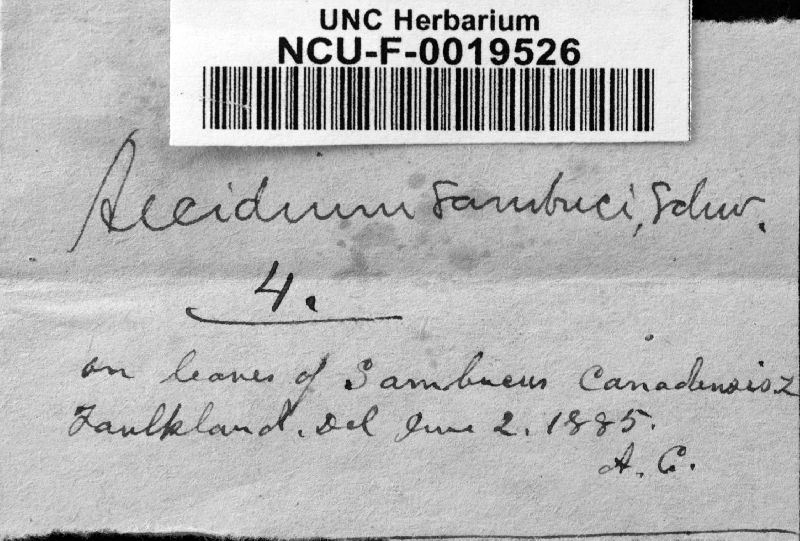 UNC Herbarium
NCU-F-0019526
Aecidium Sambuci, Schw.
4.
on leaves of Sambucus Canadensis L
Faulkland. Del June 2. 1885.
A. C.